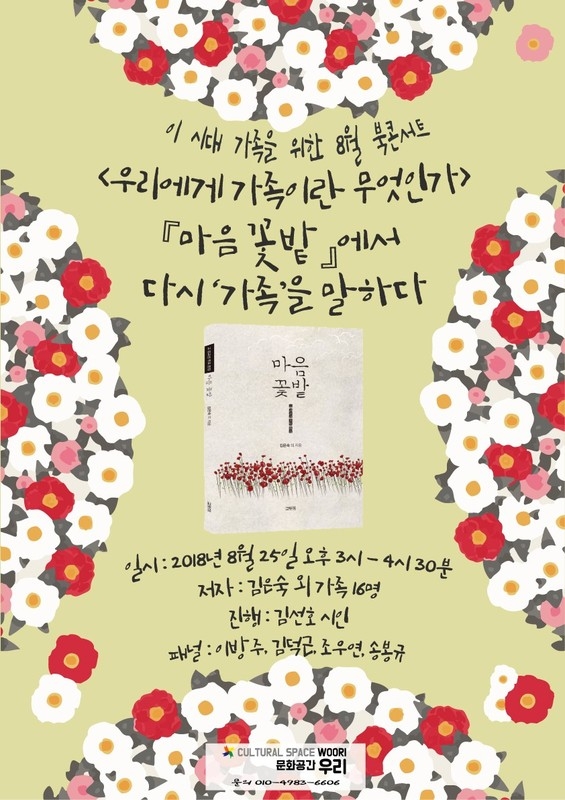 이 시대 가족을 위한 8월 북콘서트
<우리에게 가족이란 무엇인가>
『마음 꽃밭』에서
다시 '가족'을 말하다
마음
꽃밭
일시 : 2018년 8월 25일 오후 3시 - 4시 30분
저자 : 김은숙 외 가족 16명
진행 : 김선호 시인
패널 : 이방주, 김덕근, 조우연, 송봉규
CULTURAL SPACE WOORI
문화공간 우리
문의 010-4983-6606